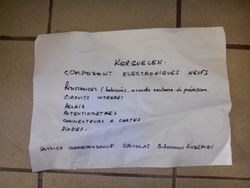 KERGUELEN:
COMPOSANT ELECTRONIQUES NEUFS
RESISTANCES ( bobinés, carbone de précision
CIRCUITS INTEGRES
RELAIS
POTENTIOMETRES
CONNECTEURS A CARTES
DIODES.